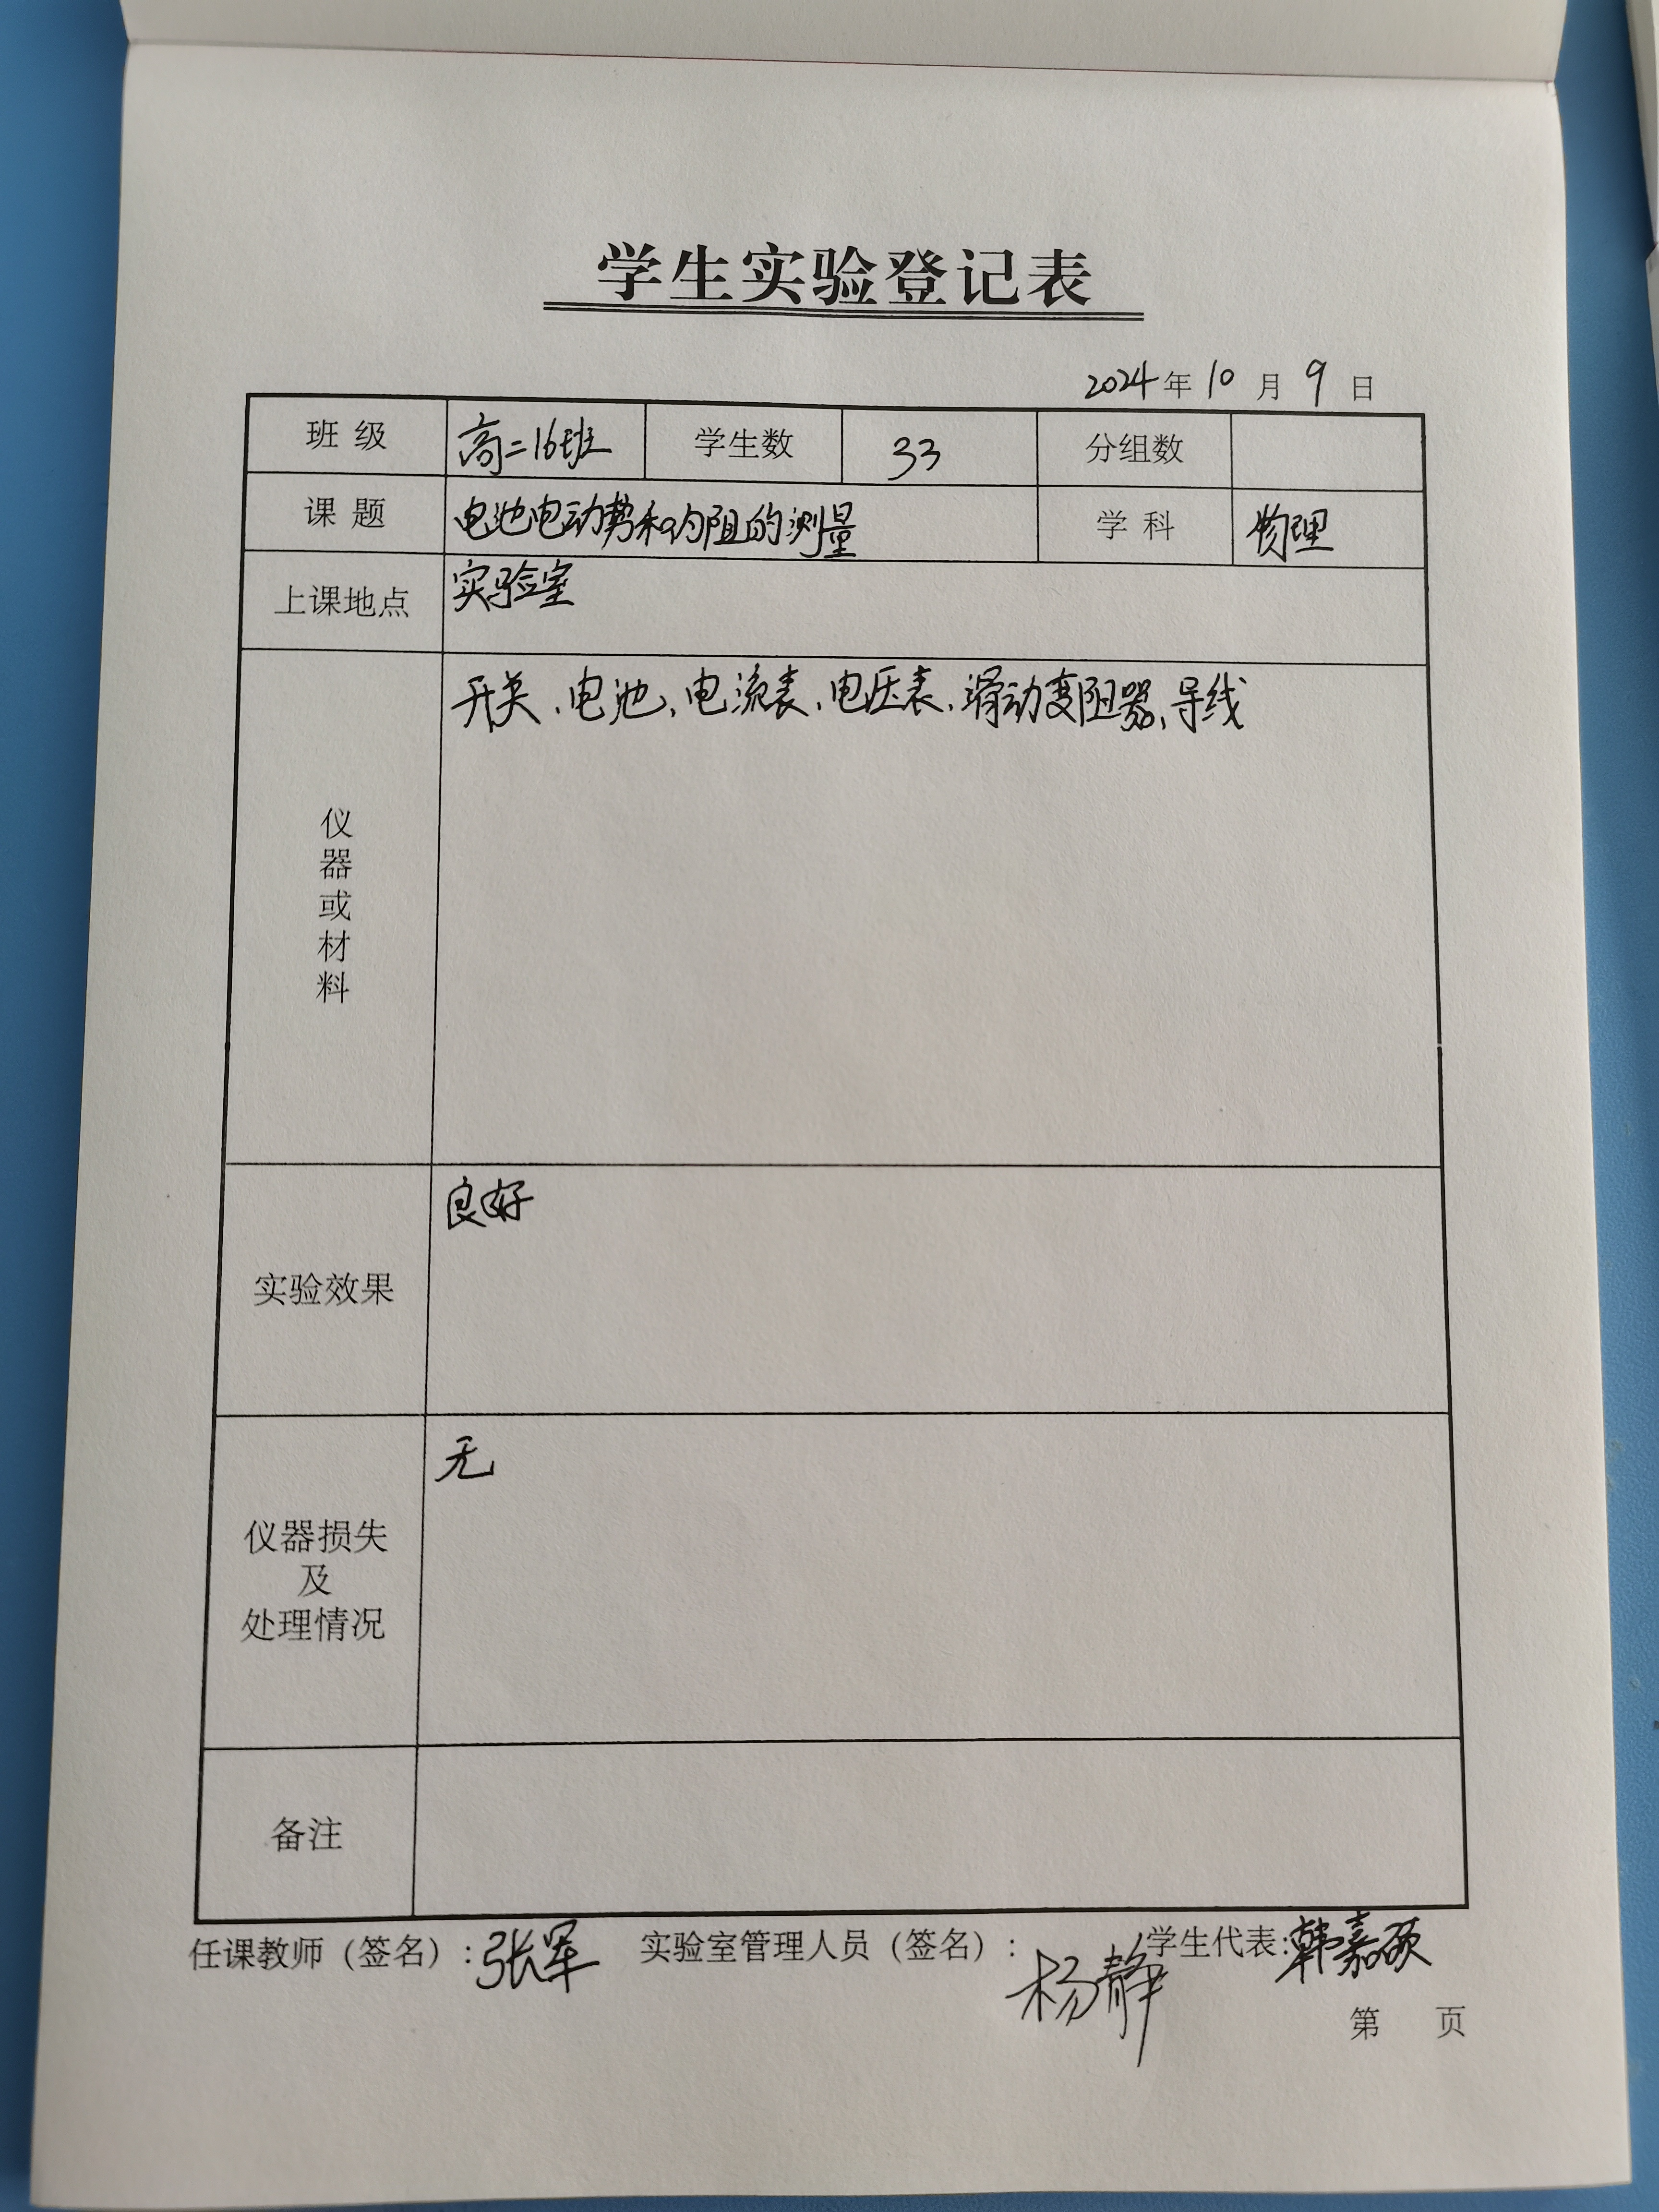 学生实验登记表
2024年 10 月 9 日
班级 高二16班 学生数 33 分组数
课题 电池电动势和内阻的测量 学科 物理
上课地点 实验室
仪器或材料 开关、电池、电流表、电压表、滑动变阻器、导线
实验效果 良好
仪器损失及处理情况 无
备注
任课教师（签名）：张军 实验室管理人员（签名）：杨静 学生代表：韩嘉硕
第 页